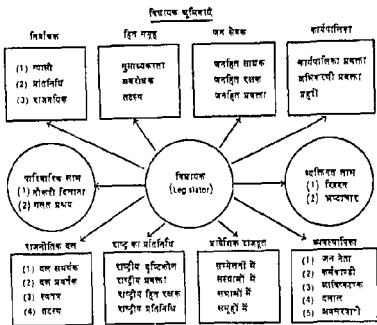 विधायक भूमिकाएँ
निर्वाचक
(1) न्यासी
(2) प्रतिनिधि
(3) राजनयिक
हित समूह
सुसाध्यकर्ता
अवरोधक
तटस्थ
जन सेवक
जनहित साधक
जनहित रक्षक
जनहित प्रवक्ता
कार्यपालिका
कार्यपालिका प्रवक्ता
अभिकरणी प्रवक्ता
प्रहरी
पारिवारिक लाभ
(1) नौकरी दिलाना
(2) गलत प्रश्रय
विधायक
(Legislator)
व्यक्तिगत लाभ
(1) रिश्वत
(2) भ्रष्टाचार
राजनीतिक दल
(1) दल समर्थक
(2) दल प्रवर्षक
(3) स्वतंत्र
(4) तटस्थ
राष्ट्र का प्रतिनिधि
राष्ट्रीय दृष्टिकोण
राष्ट्रीय प्रवक्ता
राष्ट्रीय हित रक्षक
राष्ट्रीय प्रतिनिधि
प्रादेशिक राजदूत
सम्मेलनों में
संस्थाओं में
सभाओं में
समूहों में
व्यवस्थापिका
(1) जन नेता
(2) कर्मकाण्डी
(3) आविष्कारक
(4) दलाल
(5) अवसरवादी